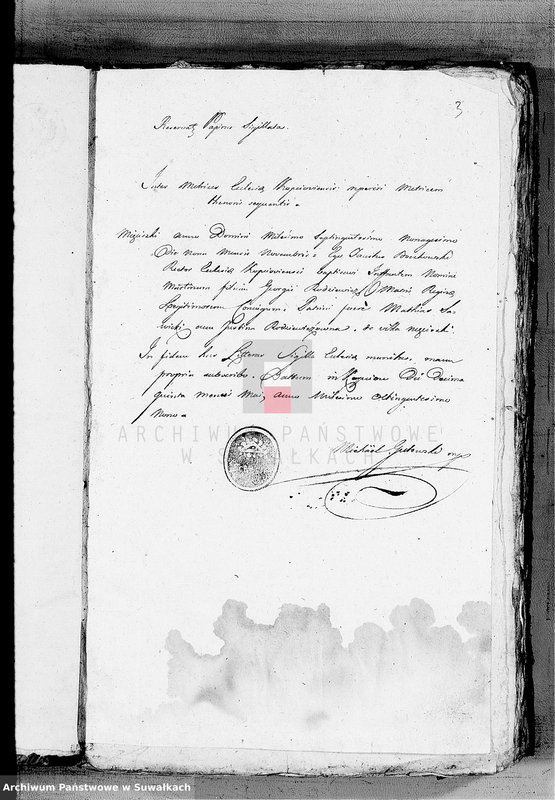 3
Reservatę Papirus Sigillata.
Inter Metrices Ecclesiæ Kopcioviensis reperiri Metricem
thenoris sequentis =
Mizierki anno Domini Milesimo Septingentesimo Nonagesimo
Die Nona Mensis Novembris: Ego
Rector Ecclesiæ Kopcioviensis baptisavi Infantem Nomine
Martinum filium Georgii Rodziewicz Maria Regina
Legitimorum Coniugum. Patrini fuere Mathias Sa-
wicki cum Justina Rodziewiczowna. de villa
In fidem has Litteras Sigillo Ecclesiæ munitas, manu
propria subscribo. Dattum in Kopciowo Die Decima
quinta mensis Maij anno Milesimo Octingentesimo
Nono =
Michael
ARCHIWUM PAŃSTWOWE
W SUWAŁKACH
Archiwum Państwowe w Suwałkach